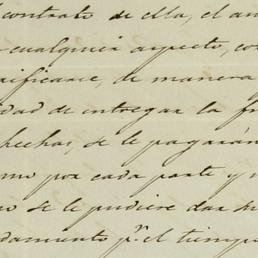 contrato de ella, el an
cualquier aspecto, co
ificarse, de manera
idad de entregar la f
hechas, se le pagarán
omo por cada parte y
no se le pudiere dar su
damiento pr. el tiempo